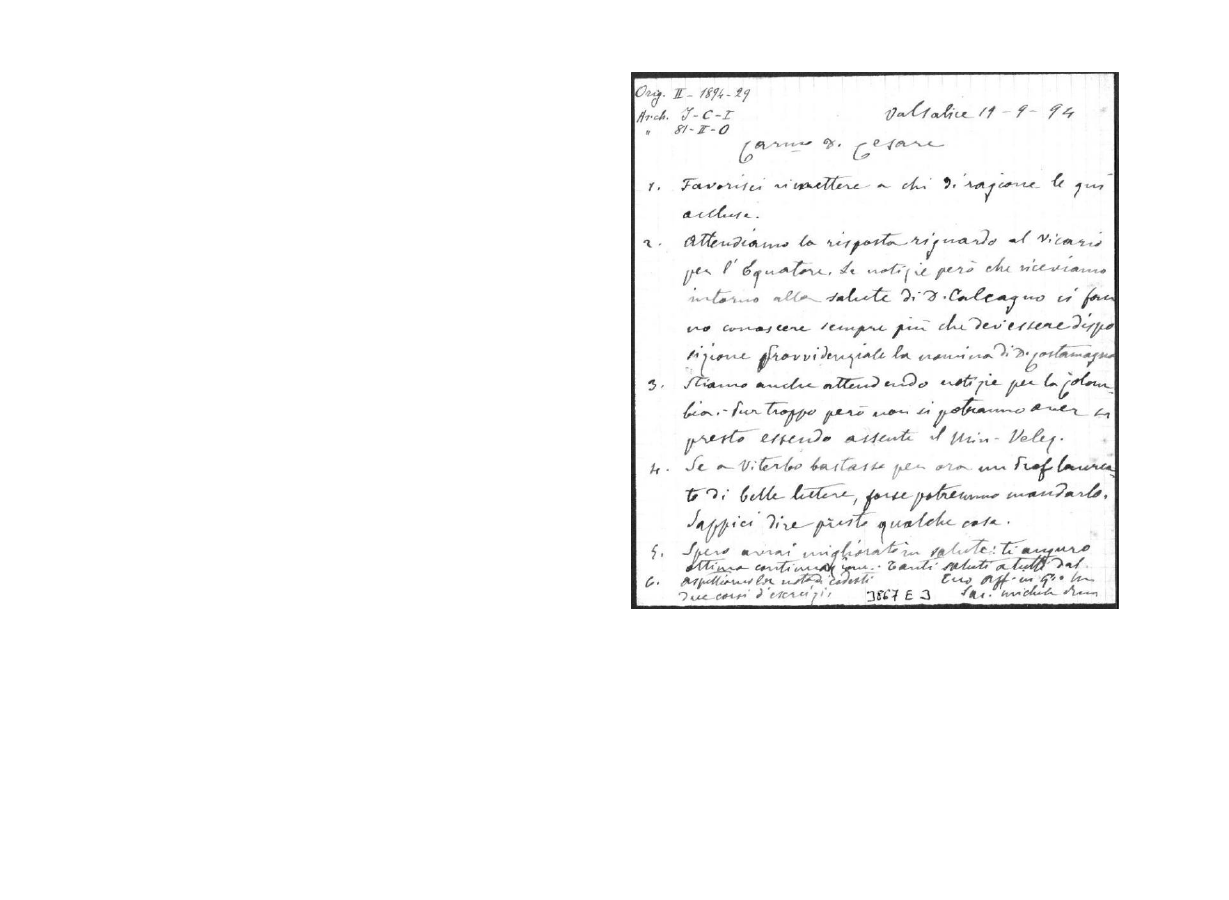 Orig. II - 1894-29
Arch. I-C-I
" 81-II-O
Valsalice 19-9-94
Carmo D. Cesare
1. Favorisci rimettere a chi di ragione le qui
accluse.
2. Attendiamo la risposta riguardo al Vicario
per l'Equatore. Le notizie però che riceviamo
intorno alla salute di D. Calcagno ci fan
no conoscere sempre più che dev'essere dispo
sizione provvidenziale la nomina di D. Costamagna
3. Stiamo anche attendendo notizie per la Colom-
bia. - Pur troppo però non si potranno aver sì
presto essendo assente il Min. Velez.
4. Se a Viterbo bastasse per ora un Prof laurea-
to di belle lettere, forse potremmo mandarlo.
Sappici dire presto qualche cosa.
5. Spero avrai migliorato in salute: ti auguro
ottima continuazione. Tanti saluti a tutti dal
6. Aspettiamo nota di codesti
due corsi d'esercizi.
Tuo aff. in G.
Sac. Michele Rua
3867 E 3